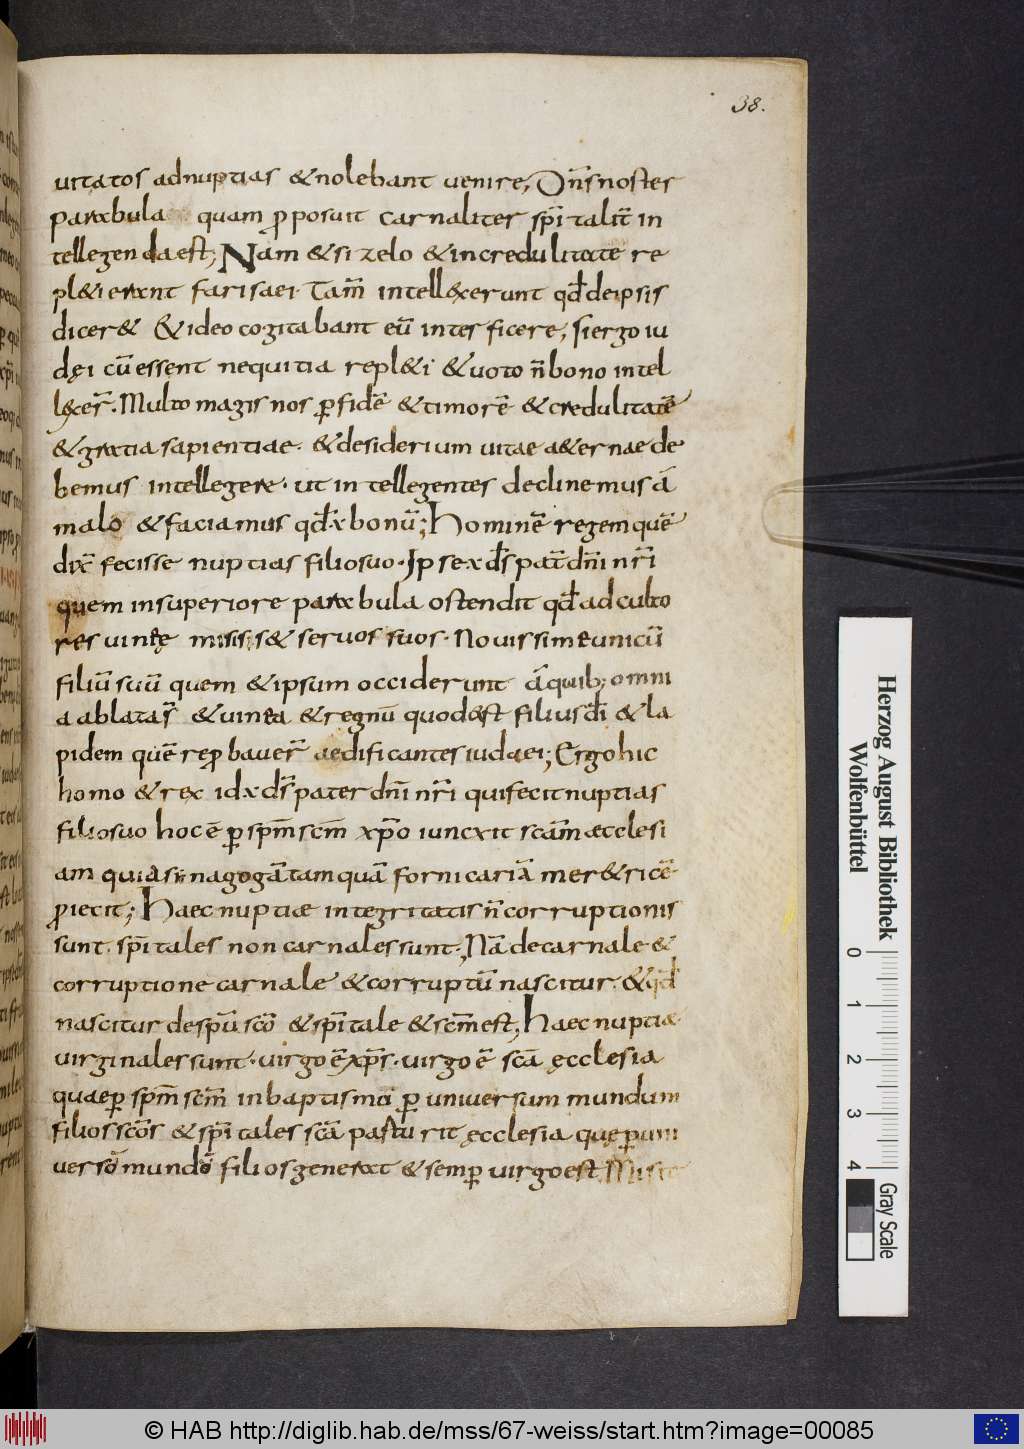 38.
uitatos adnuptias & nolebant uenire, Dn̄s noster
parabula quam ꝓposuit carnaliter sp̄italit̄ in
tellegenda est; Nam & si zelo & incredulitate re
pl&i erant farisaei. Tam̄ intellexerunt qđ de ipsis
dicer& & ideo cogitabant eū interficere, si ergo iu
dęi cū essent nequitia repl&i & uoto n̄ bono intel
lexer̄. Multo magis nos ꝑ fidē & timorē & credulitatē
& gratia sapientiae. & desiderium uitae a&ernae de
bemus intellegere. ut intellegentes declinemus ā
malo & faciamus qđ x bonū; Hominē regem quē
dix̄ fecisse nuptias filio suo. Ipse x ds̄ pat̄ dn̄i nr̄i
quem in superiore parabula ostendit qđ ad culto
res uineę misiss& seruos suos. Nouissime unicū
filiū suū quem & ipsum occiderunt ā quib; omni
a ablata s̄ & uinea & regnū quod est filius dī & la
pidem quē reꝓbauer̄ aedificantes iudaei; Ergo hic
homo & rex id x ds̄ pater dn̄i nr̄i qui fecit nuptias
filio suo hoc ē ꝑ sp̄m scm̄ xp̄o iuncxit scām ecclesi
am quia sinagogā tamquā fornicariā mer&ricē
ꝓiecit; Haec nuptiae integritatis n̄ corruptionis
sunt. sp̄itales non carnales sunt; Nā de carnale &
corruptione carnale & corruptū nascitur. & qđ
nascitur de sp̄u scō & sp̄itale & scm̄ est, Haec nuptiae
uirginales sunt. uirgo ē xp̄s. uirgo ē scā ęcclesia
quae ꝑ sp̄m scm̄ in baptismo ꝑ uniuersum mundum
filios scōs & sp̄itales scā parturit ęcclesia quę ꝑ uni
uersō mundō filios generat & semꝑ uirgo est. Miste
Herzog August Bibliothek
Wolfenbüttel
0 1 2 3 4
Gray Scale
© HAB http://diglib.hab.de/mss/67-weiss/start.htm?image=00085